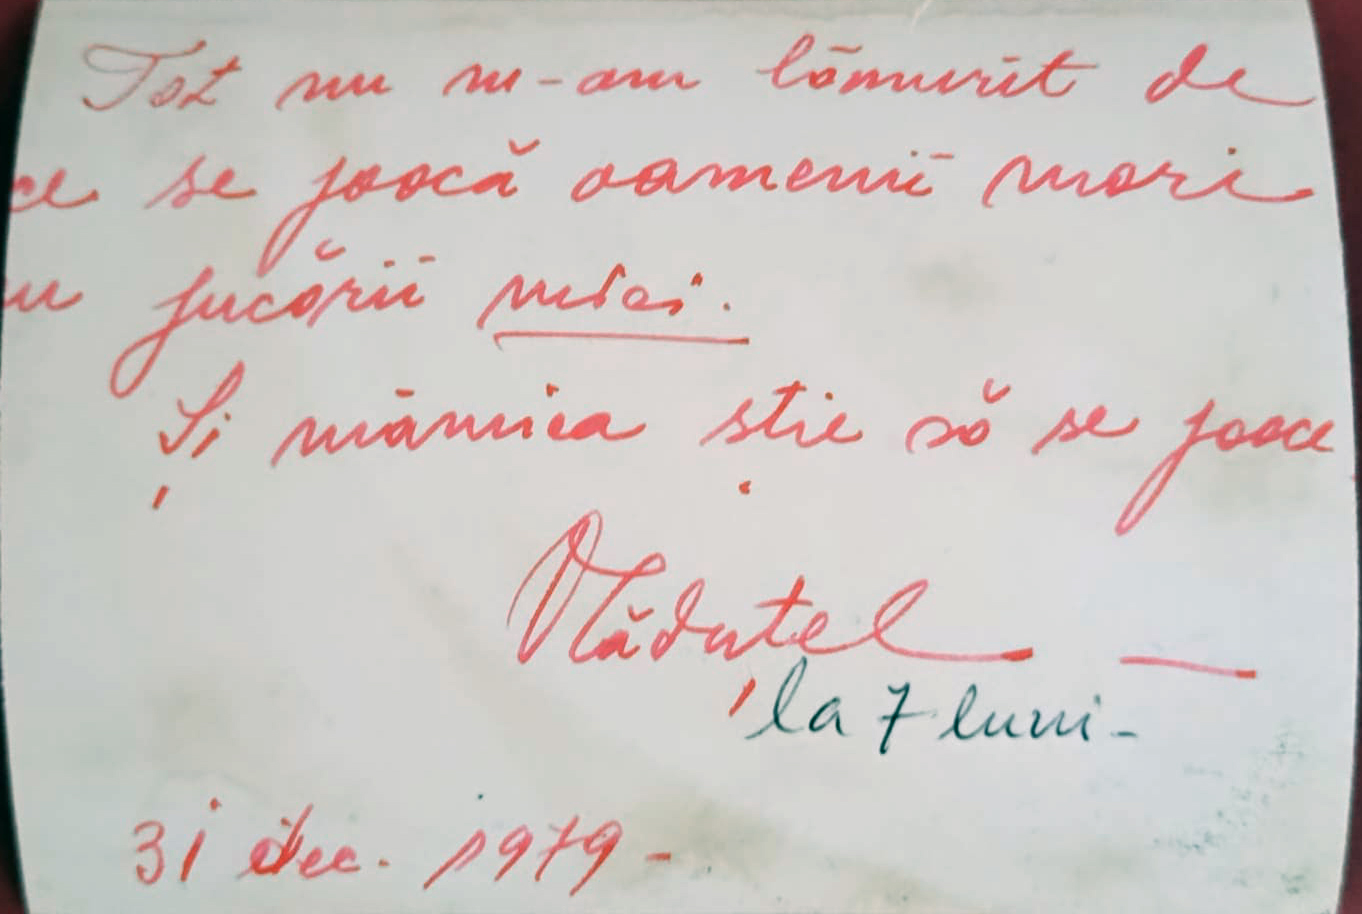 Tot nu m-am lămurit de
ce se joacă oamenii mari
cu jucării mici.
Și mămica știe să se joace
Vlăduțel —
la 7 luni -
31 dec. 1979 -